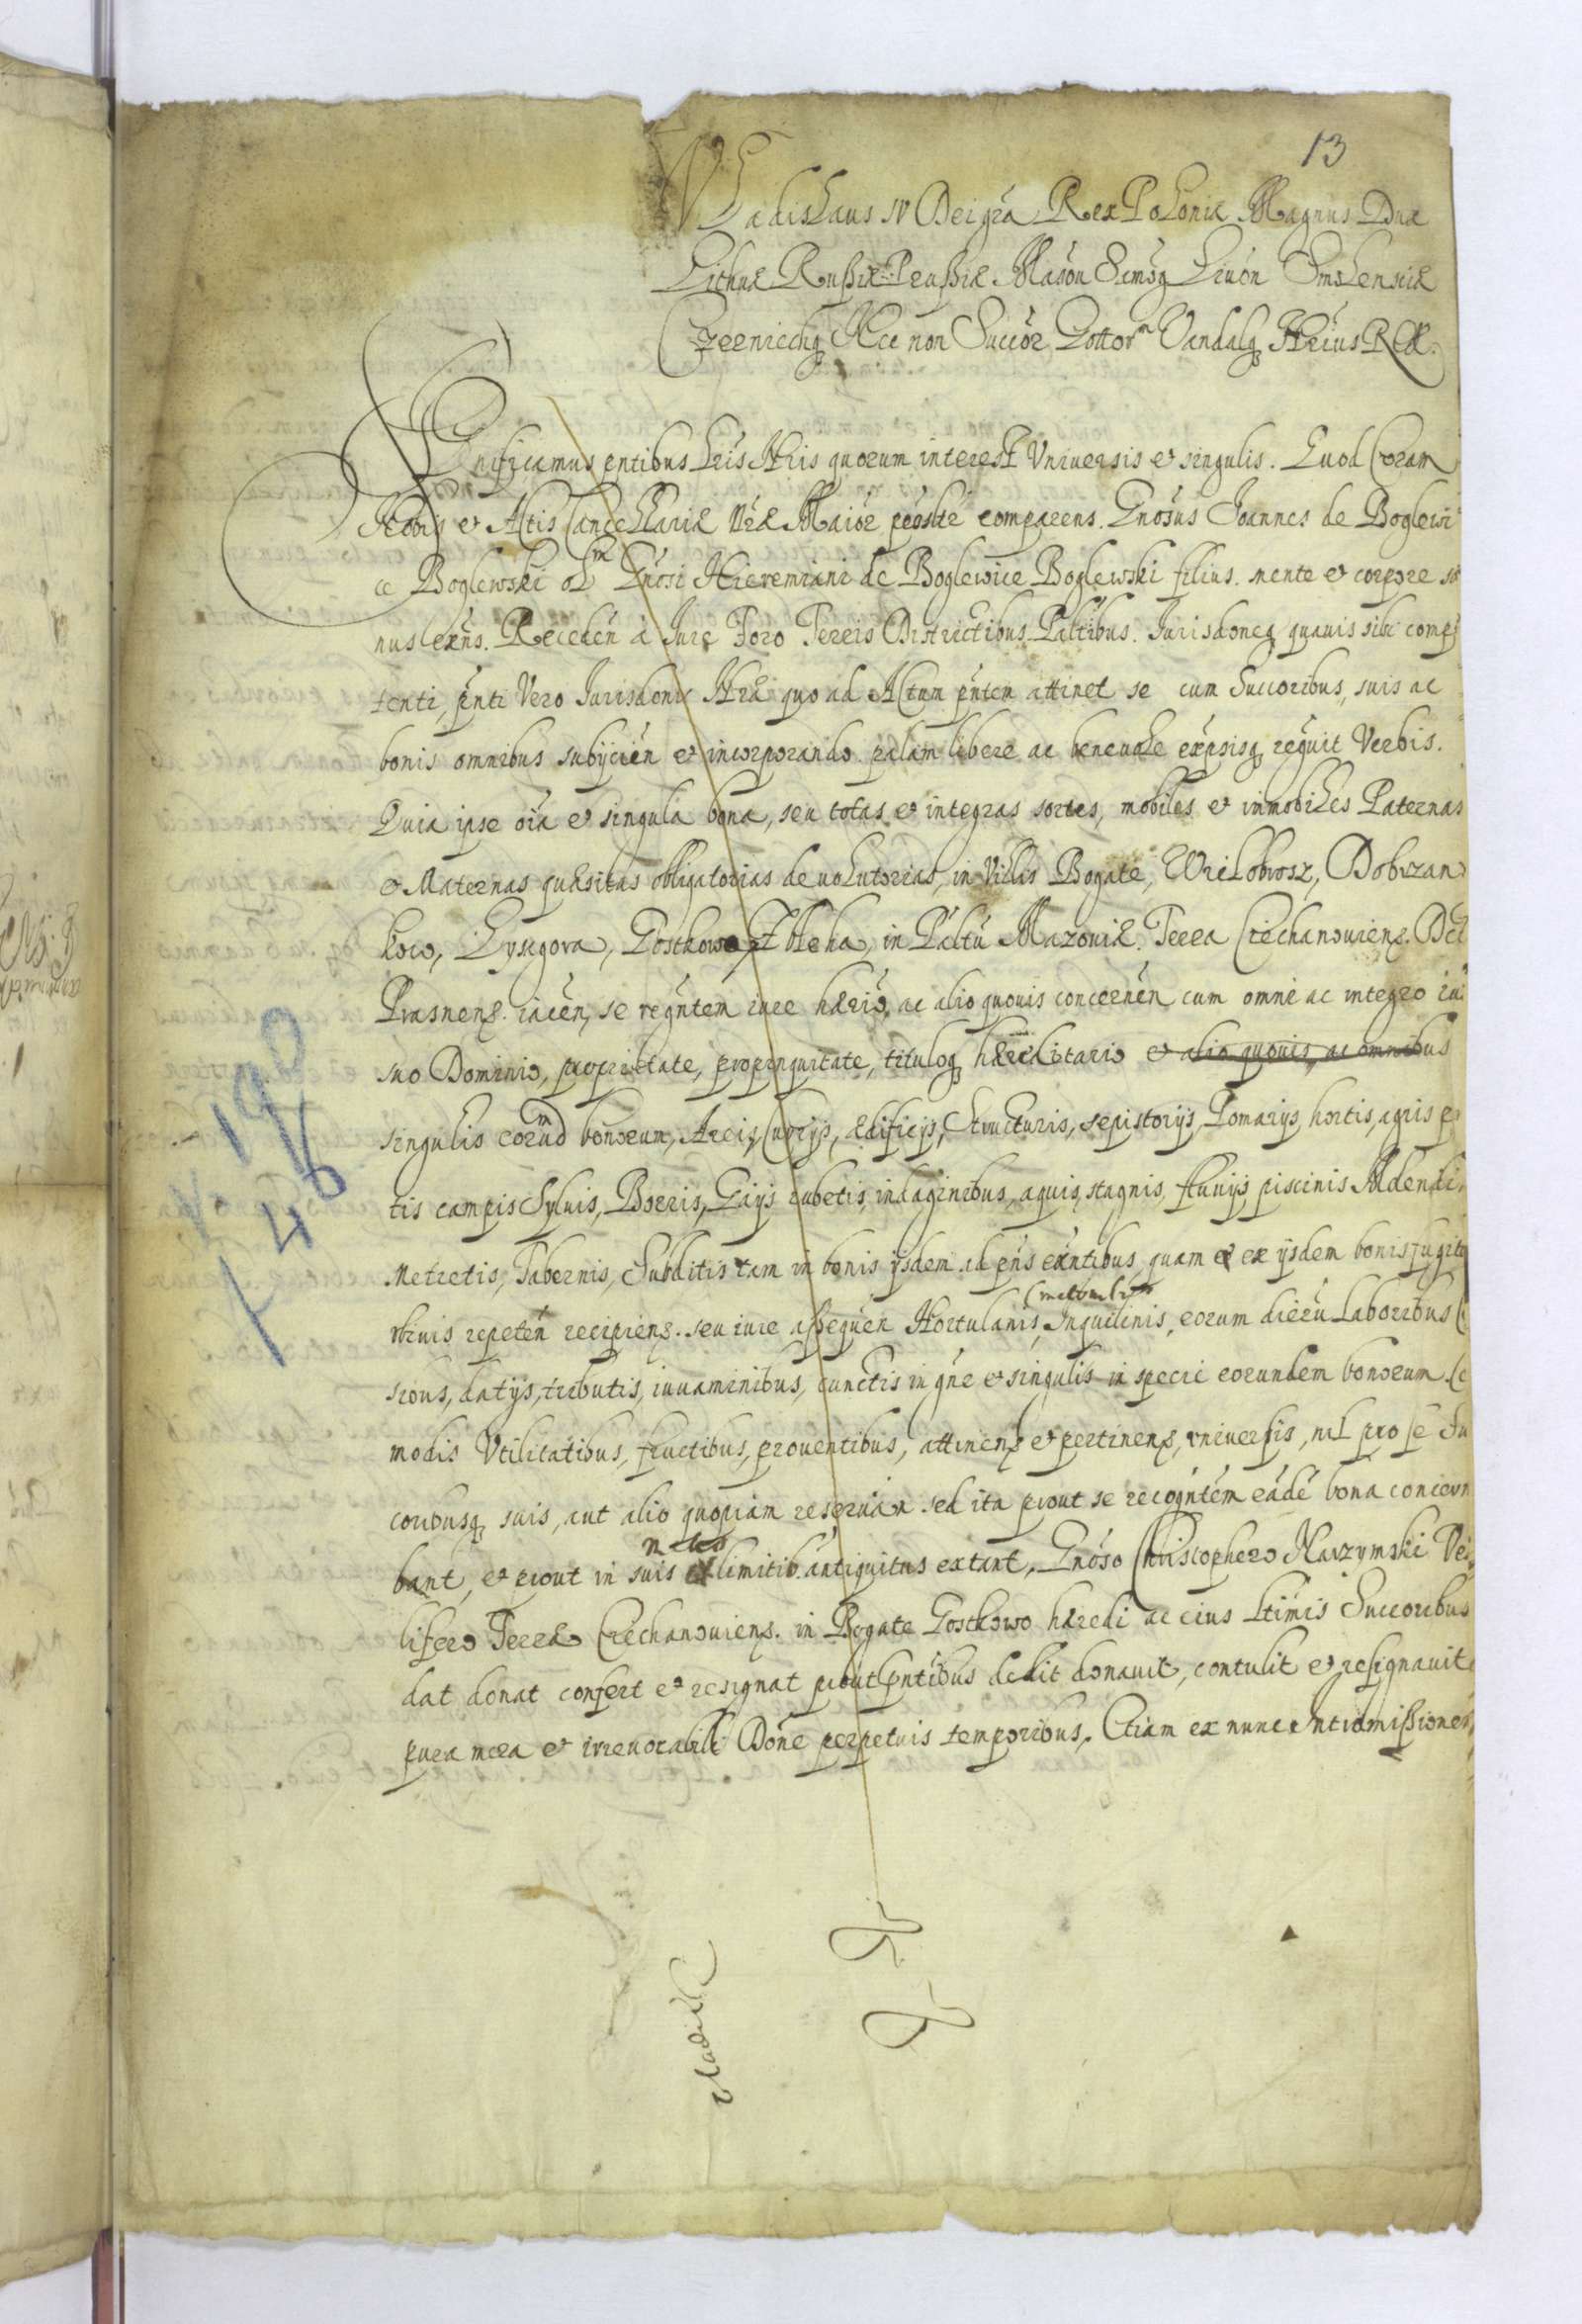 13
Vladislaus IV Dei gra Rex Poloniæ Magnus Dux
Lithuæ Russiæ Prussiæ Masou Samsq Liuon Smolensciæ
Czerniechq Nec non Suecor Gottorm Vandalq Hrius Rex.
Significamus pntibus Lris Nris quorum interest Vniuersis et singulis. Quod Coram
Nobis et Actis Cancellariæ Nræ Maior psolr comparens. Gnosus Joannes de Boglewi
ce Boglewski olm Gnosi Hieremiani de Boglewice Boglewski filius. mente et corpore sa
nus exns. Receden à Jure Foro Terris Districtibus Paltibus. Jurisdoneq quauis sibi compe
tenti, pnti Vero Jurisdoni Nræ quo ad Actum pntem attinet se cum Succoribus, suis ac
bonis omnibus subijcien et incorporando palam libere ac beneuole expsisq recuit Verbis.
Quia ipse oia et singula bona, seu totas et integras sortes, mobiles et immobiles Paternas
et Maternas quæsitas obligatorias deuolutorias, in Villis Bogate, Wielobrosz, Dobrzan
kow, Lysagora, Gostkowo in Paltu Mazouiæ. Terra Ciechanouienq. Dct
Prasnenq. iacen, se recgntem iure hærio, ac alio quouis concernen cum omni ac integro iu
suo Dominio, proprietate, propinquitate, tituloq hæreditario et alio quouis, ac omnibus
singulis eorund bonorum, Areis, Curijs, ædificijs, Structuris, sepistorijs, Pomarijs, hortis, agris pr
tis campis Syluis, Borris, Gaijs rubetis, indaginibus, aquis, stagnis, fluuijs, piscinis Molendi
Metretis, Tabernis, Subditis tam in bonis ijsdem ad pns exntibus, quam et ex ijsdem bonis fugiti
rbiuis repeten recipienq. seu iure assequen Hortulanis, Inquilinis, eorum dieru Laboribus C
sious, datijs, tributis, iuuaminibus, cunctis in gne et singulis in specie eorundem bonorum Co
modis Vtilitatibus, fructibus, prouentibus, attinenq et pertinenq, vniuersis, nil pro se Su
coribusq suis, aut alio quopiam reseruan sed ita prout se recogntem eadé bona concern
bant, et prout in suis limitib. antiquitus extant, Gnoso Christophero Narzymski Ve
lifero Terræ Ciechanouienq. in Bogate Gostkowo hæredi ac eius Ltimis Succoribus
dat donat confert et resignat prout pntibus dedit donauit, contulit et resignauit
pura mera et irreuocabili Done perpetuis temporibus. Etiam ex nunc Intromissionem